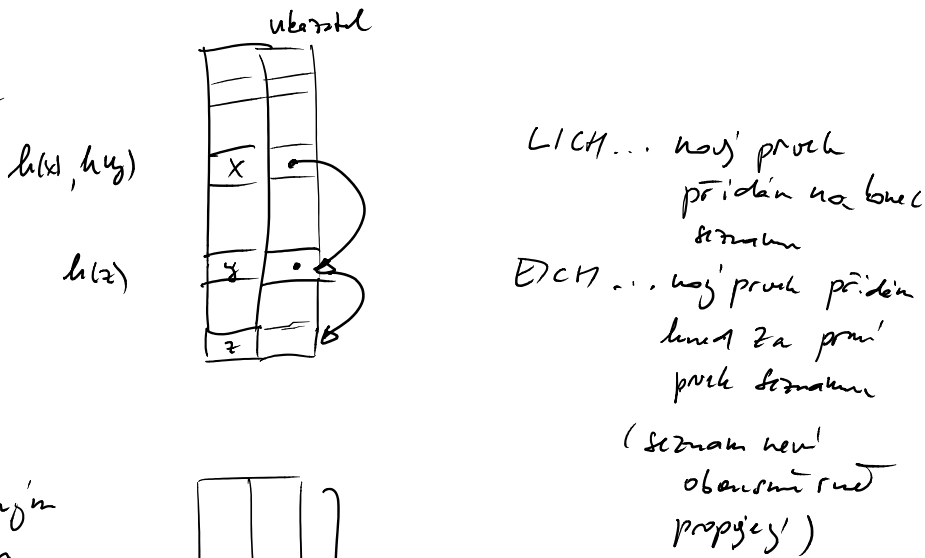 ukazatel
h(x), h(y)
x
h(z)
y
z
LICH... nový prvek
přidán na konec
seznamu
EICH... nový prvek přidán
hned za první
prvek seznamu
(seznam není
obousměrně
propojený)